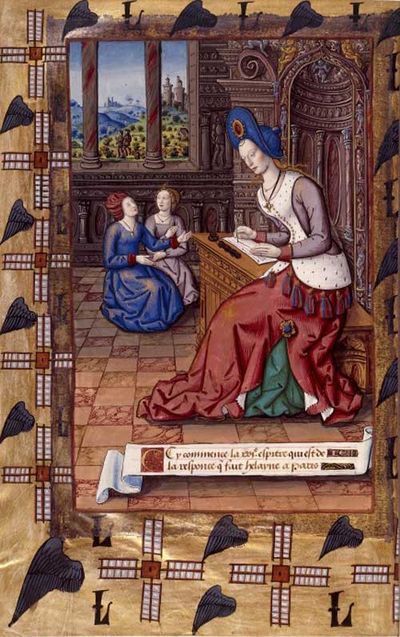 Cy commence la xvᵉ espitre qui est de
la responce q̃ fait helayne a paris
L
L
L
L
L
L
L
L
L